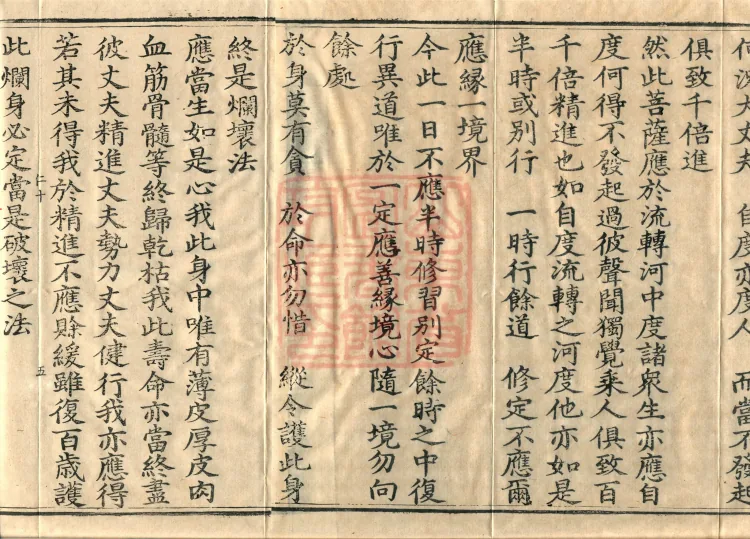 丈夫 自度亦度人 而當不發起
俱致千倍進
然此菩薩應於流轉河中度諸衆生亦應自
度何得不發起過彼聲聞獨覺乘人俱致百
千倍精進也如自度流轉之河度他亦如是
半時或別行 一時行餘道 修定不應爾
應緣一境界
今此一日不應半時修習別定餘時之中復
行異道唯於一定應善緣境心隨一境勿向
餘處
於身莫有貪 於命亦勿惜 縱令護此身
終是爛壞法
應當生如是心我此身中唯有薄皮厚皮肉
血筋骨髓等終歸乾枯我此壽命亦當終盡
彼丈夫精進丈夫勢力丈夫健行我亦應得
若其未得我於精進不應賒緩雖復百歲護
仁十 五
此爛身必定當是破壞之法